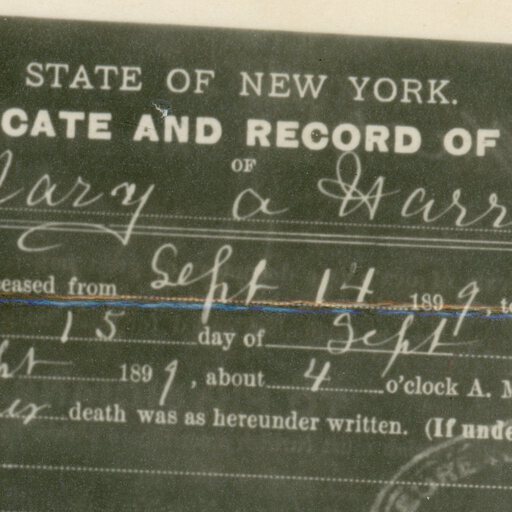 STATE OF NEW YORK.
CATE AND RECORD OF
OF
Mary a Harr
eased from Sept 14 1899, to
15 day of Sept
pt 1899, about 4 o'clock A. M
death was as hereunder written. (If unde